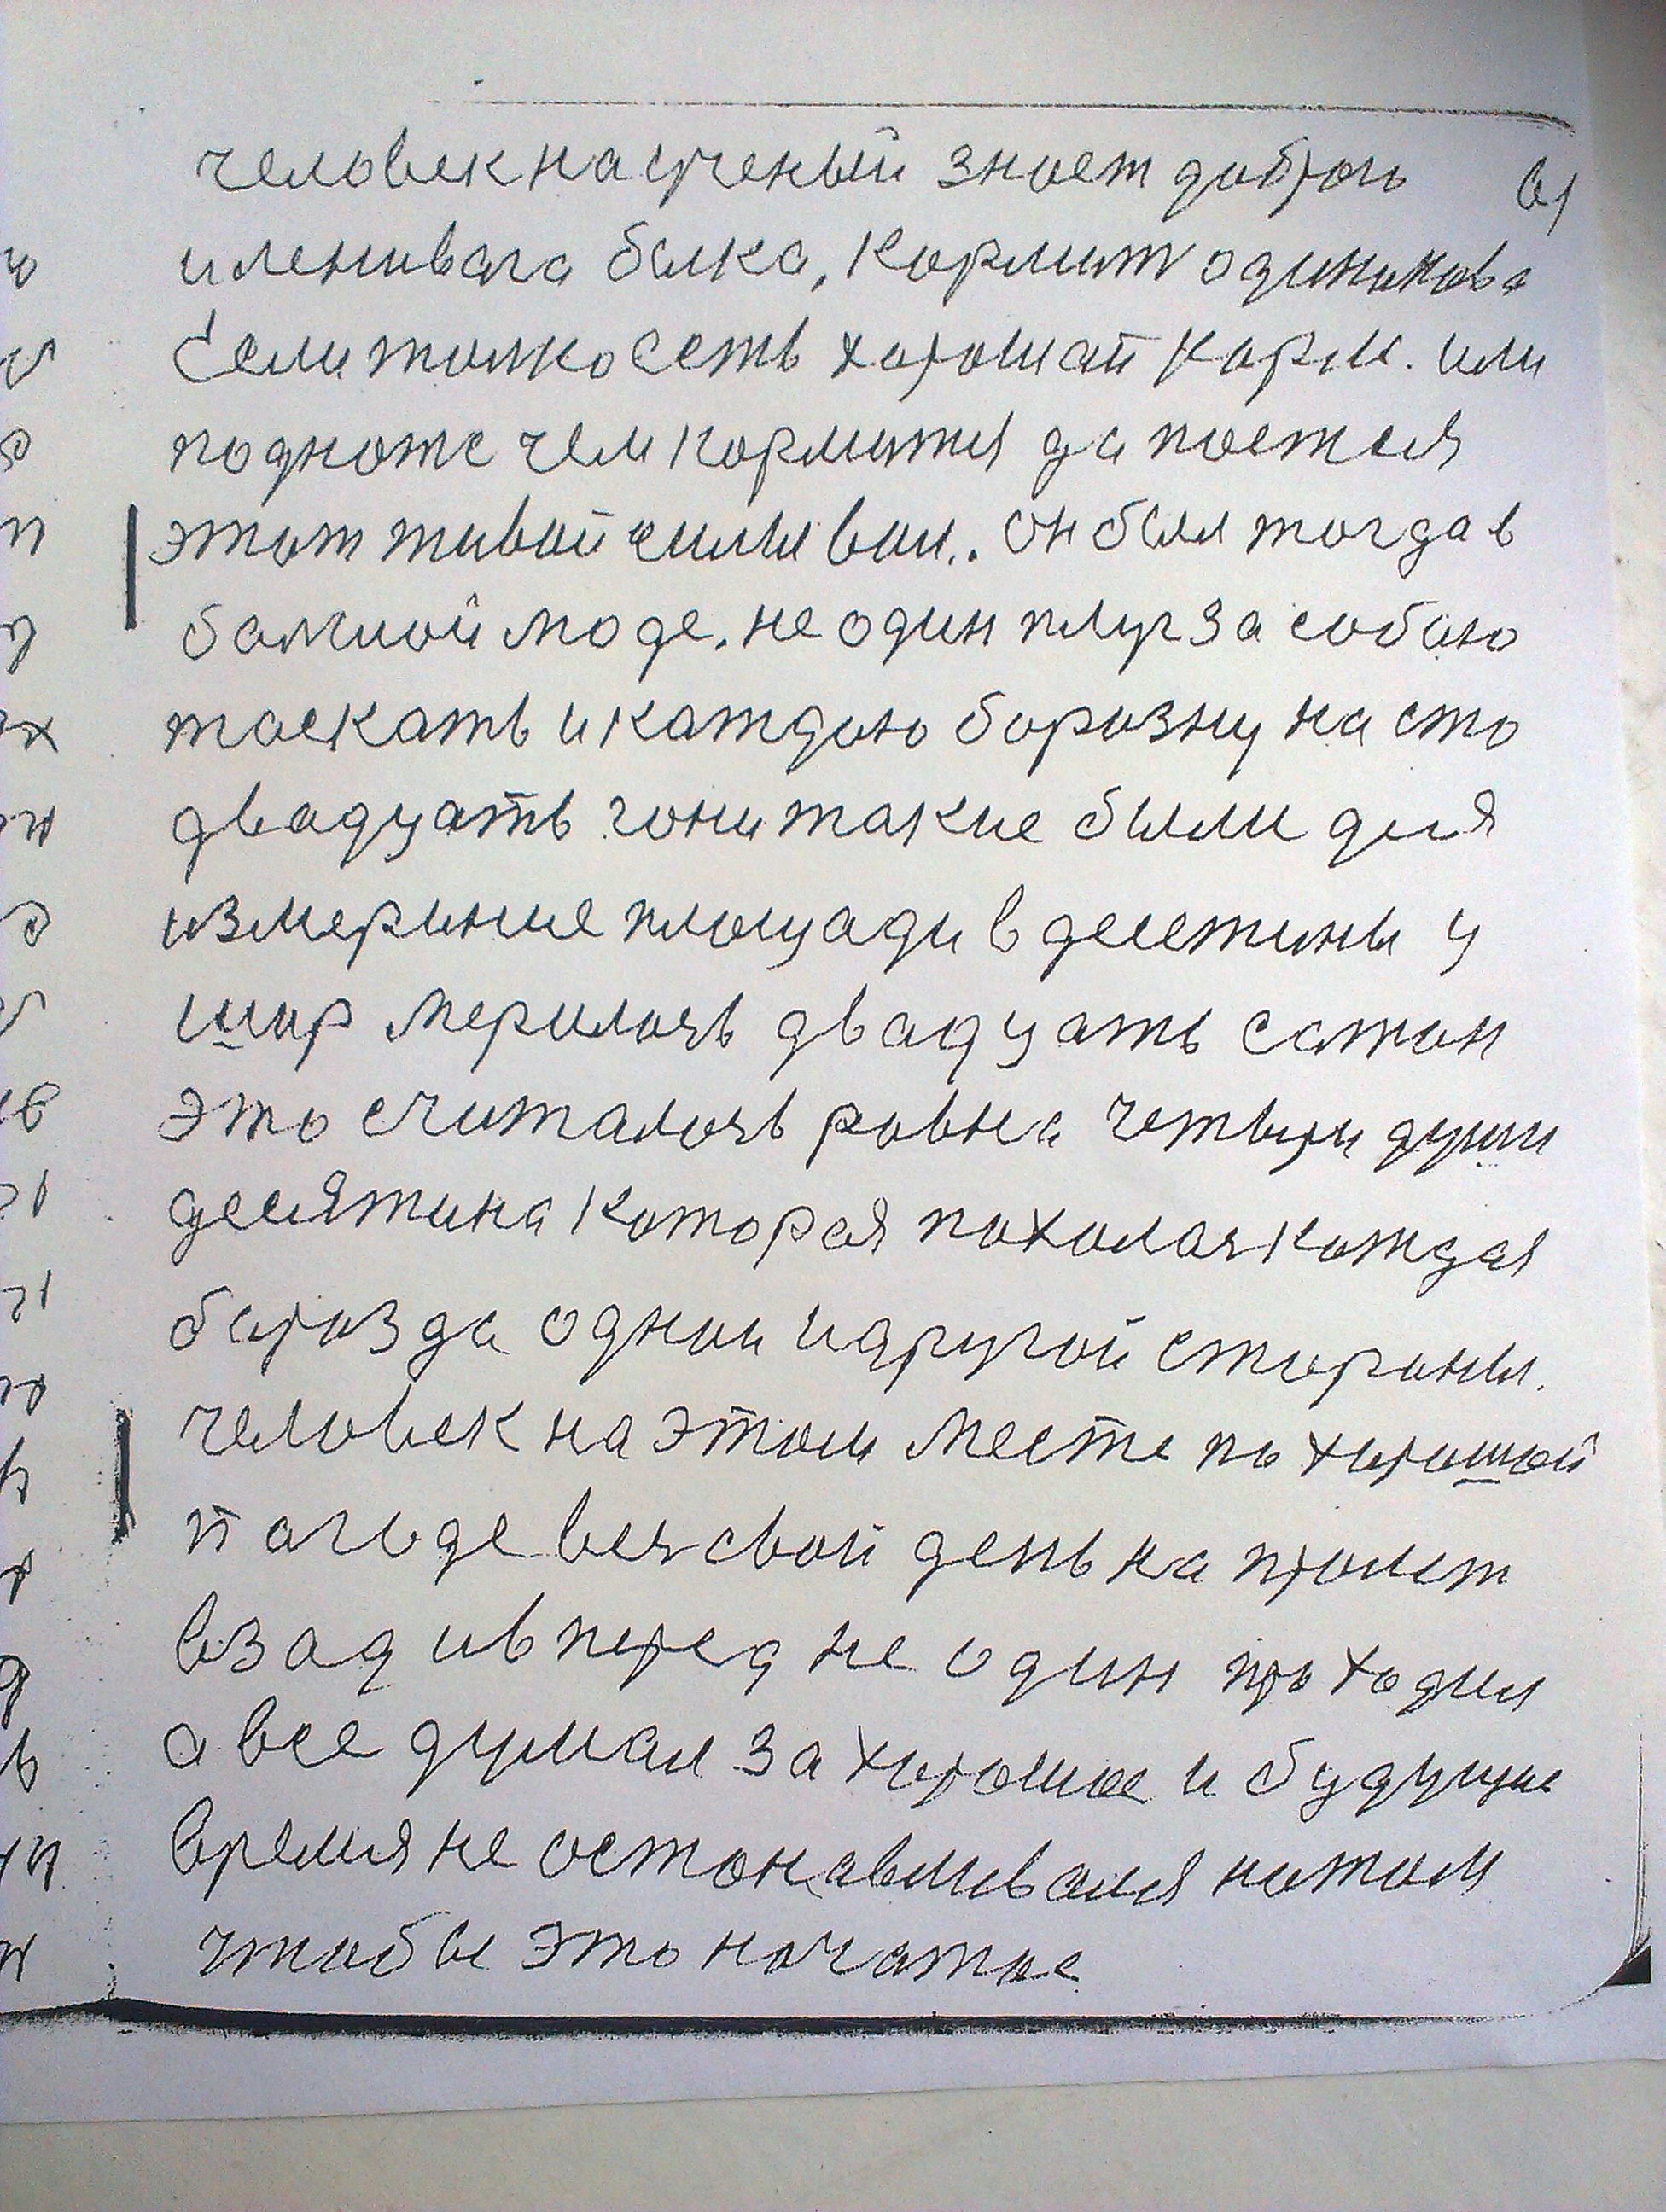 человек научений знает доброго
и ленивага быка, кормит одинакова
Если толко есть хорошай корм. или
подноже чем кормится да поется
этот живой силы вол.. он был тогда в
балшой моде. не один плуг за собою
таскать и каждою борозну на сто
двадцать гони такие были для
измериние площади в десетины у
шир мерилось двадцать сажон
это считалось ровна четыри души
десятина которая похолася каждая
борозда однои и другой стороны.
человек на этом месте по хорошой
пагоде веся свой день на пролет
взад и вперед не один проходил
а все думал за хорошое и будущие
время не останавливался на том
чтобы это начатое